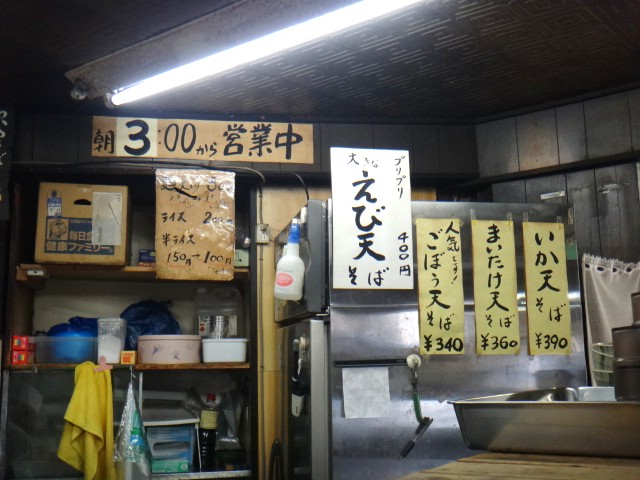 朝3:00から営業中
ライス 200
半ライス
150円→100円
毎日食べる
健康ファミリー
大きな
プリプリ
えび天
そば
400円
人気です!
ごぼう天
そば
¥340
まいたけ天
そば
¥360
いか天
そば
¥390